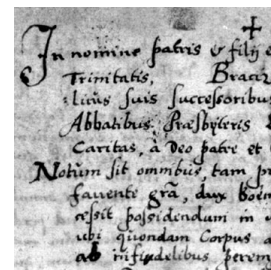 In nomine patris & filij e
Trinitatis, Braciz
licus suis successoribu
Abbatibus Præsbyteris
Caritas, à Deo patre et
Notum sit omnibus, tam pr
favente grã, dux Boem
cessit possidendum in
ubi quondam Corpus
ab infidelibus perem